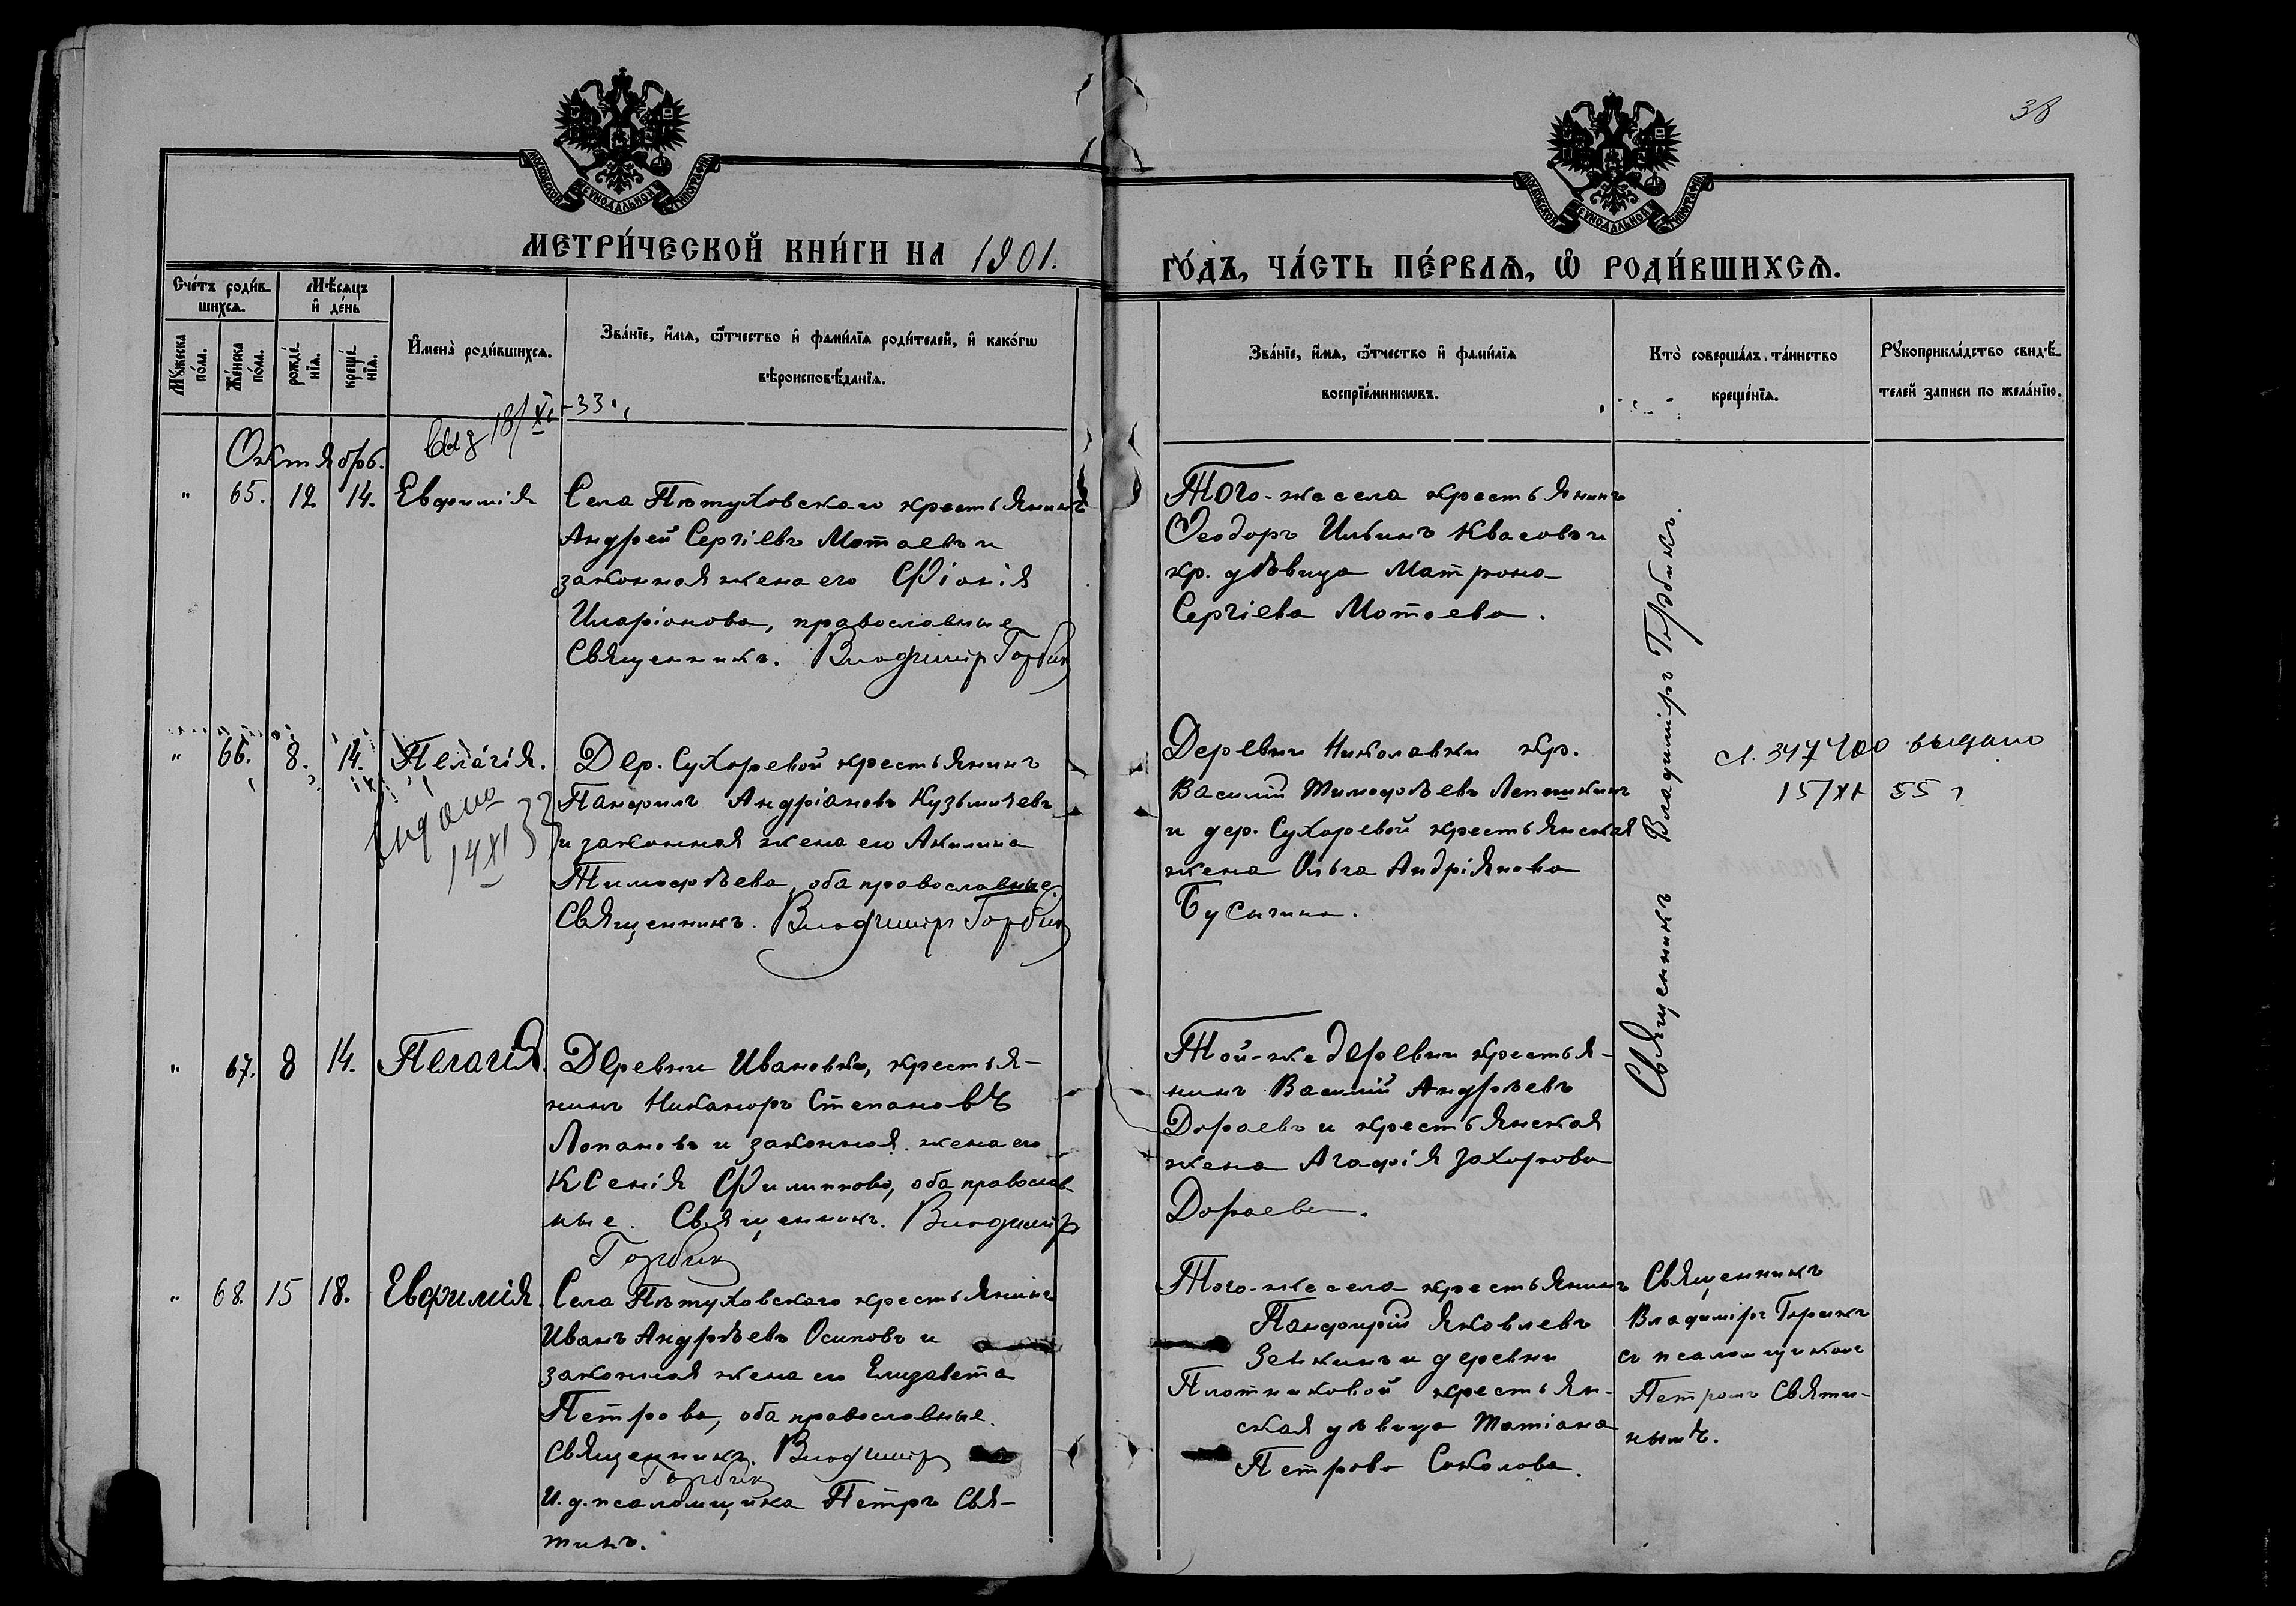 38
МОСКОВСКОЙ СѴНОДАЛЬНОЙ ТИПОГРАФІИ
МОСКОВСКОЙ СѴНОДАЛЬНОЙ ТИПОГРАФІИ
МЕТРИ́ЧЕСКОЙ КНИ́ГИ НА 1901.
ГО́ДЪ, ЧА́СТЬ ПЕ́РВАѦ, Ѡ РОДИ́ВШИХСѦ.
Сче́тъ роди́в-
шихсѧ.
Мѣ́сѧцъ
и҆ де́нь
Мꙋ́жеска
по́ла.
Же́нска
по́ла.
рожде́-
нїѧ.
креще́-
нїѧ.
И҆мена̀ роди́вшихсѧ.
Зва́нїе, и҆́мѧ, ѻ҆́тчество и҆ фами́лїѧ роди́телей, и҆ како́гѡ
вѣроисповѣ́данїѧ.
Зва́нїе, и҆́мѧ, ѻ҆́тчество и҆ фами́лїѧ
воспрїе́мникѡвъ.
Кто̀ соверша́лъ та́инство
креще́нїѧ.
Рꙋкоприкла́дство свидѣ́-
телей записи по жела́нїю.
Выд 18/XI -33.
Октябрь.
" 65. 12 14. Евфимія
Села Пѣтуховскаго крестьянинъ
Андрей Сергіевъ Мотаевъ и
законная жена его Фіонія
Иларіонова, православные
Священникъ. Владиміръ Горбик
Того-же села крестьянинъ
Ѳеодоръ Ильинъ Квасовъ и
кр. дѣвица Матрона
Сергіева Мотаева.
Священникъ Владиміръ Горбикъ.
" 66. 8. 14. Пелагія.
выдано
14 XI 33
Дер. Сухоревой крестьянинъ
Панфилъ Андріановъ Кузьмичевъ
и законная жена его Акилина
Тимофѣева, оба православные.
Священникъ. Владиміръ Горбик
Деревни Николавки кр.
Василій Тимофѣевъ Лепешкинъ
и дер. Сухоревой крестьянская
жена Ольга Андріянова
Бусыгина.
347400 выдано
15/XI 55 г
" 67. 8 14. Пелагія.
Деревни Ивановки, крестья-
нинъ Никаноръ Степановъ
Лопановъ и законная жена его
Ксенія Филиппова, оба православ-
ные. Священникъ. Владиміръ
Горбик
Той-же деревни крестья-
нинъ Василій Андрѣевъ
Дораевъ и крестьянская
жена Агафія Захорова
Дораева.
" 68. 15 18. Евфимія.
Села Пѣтуховскаго крестьянинъ
Иванъ Андрѣевъ Осиповъ и
законная жена его Елизавета
Петрова, оба православные.
Священникъ. Владиміръ
Горбик
И.д. псаломщика Петръ Свя-
тинъ.
Того-же села крестьянинъ
Яковлевъ
Зенкинъ и деревни
Плотниковой крестьян-
ская дѣвица Татіана
Петрова Соколова.
Священникъ
Владиміръ Горбикъ
съ псаломщикомъ
Петромъ Святи-
нымъ.